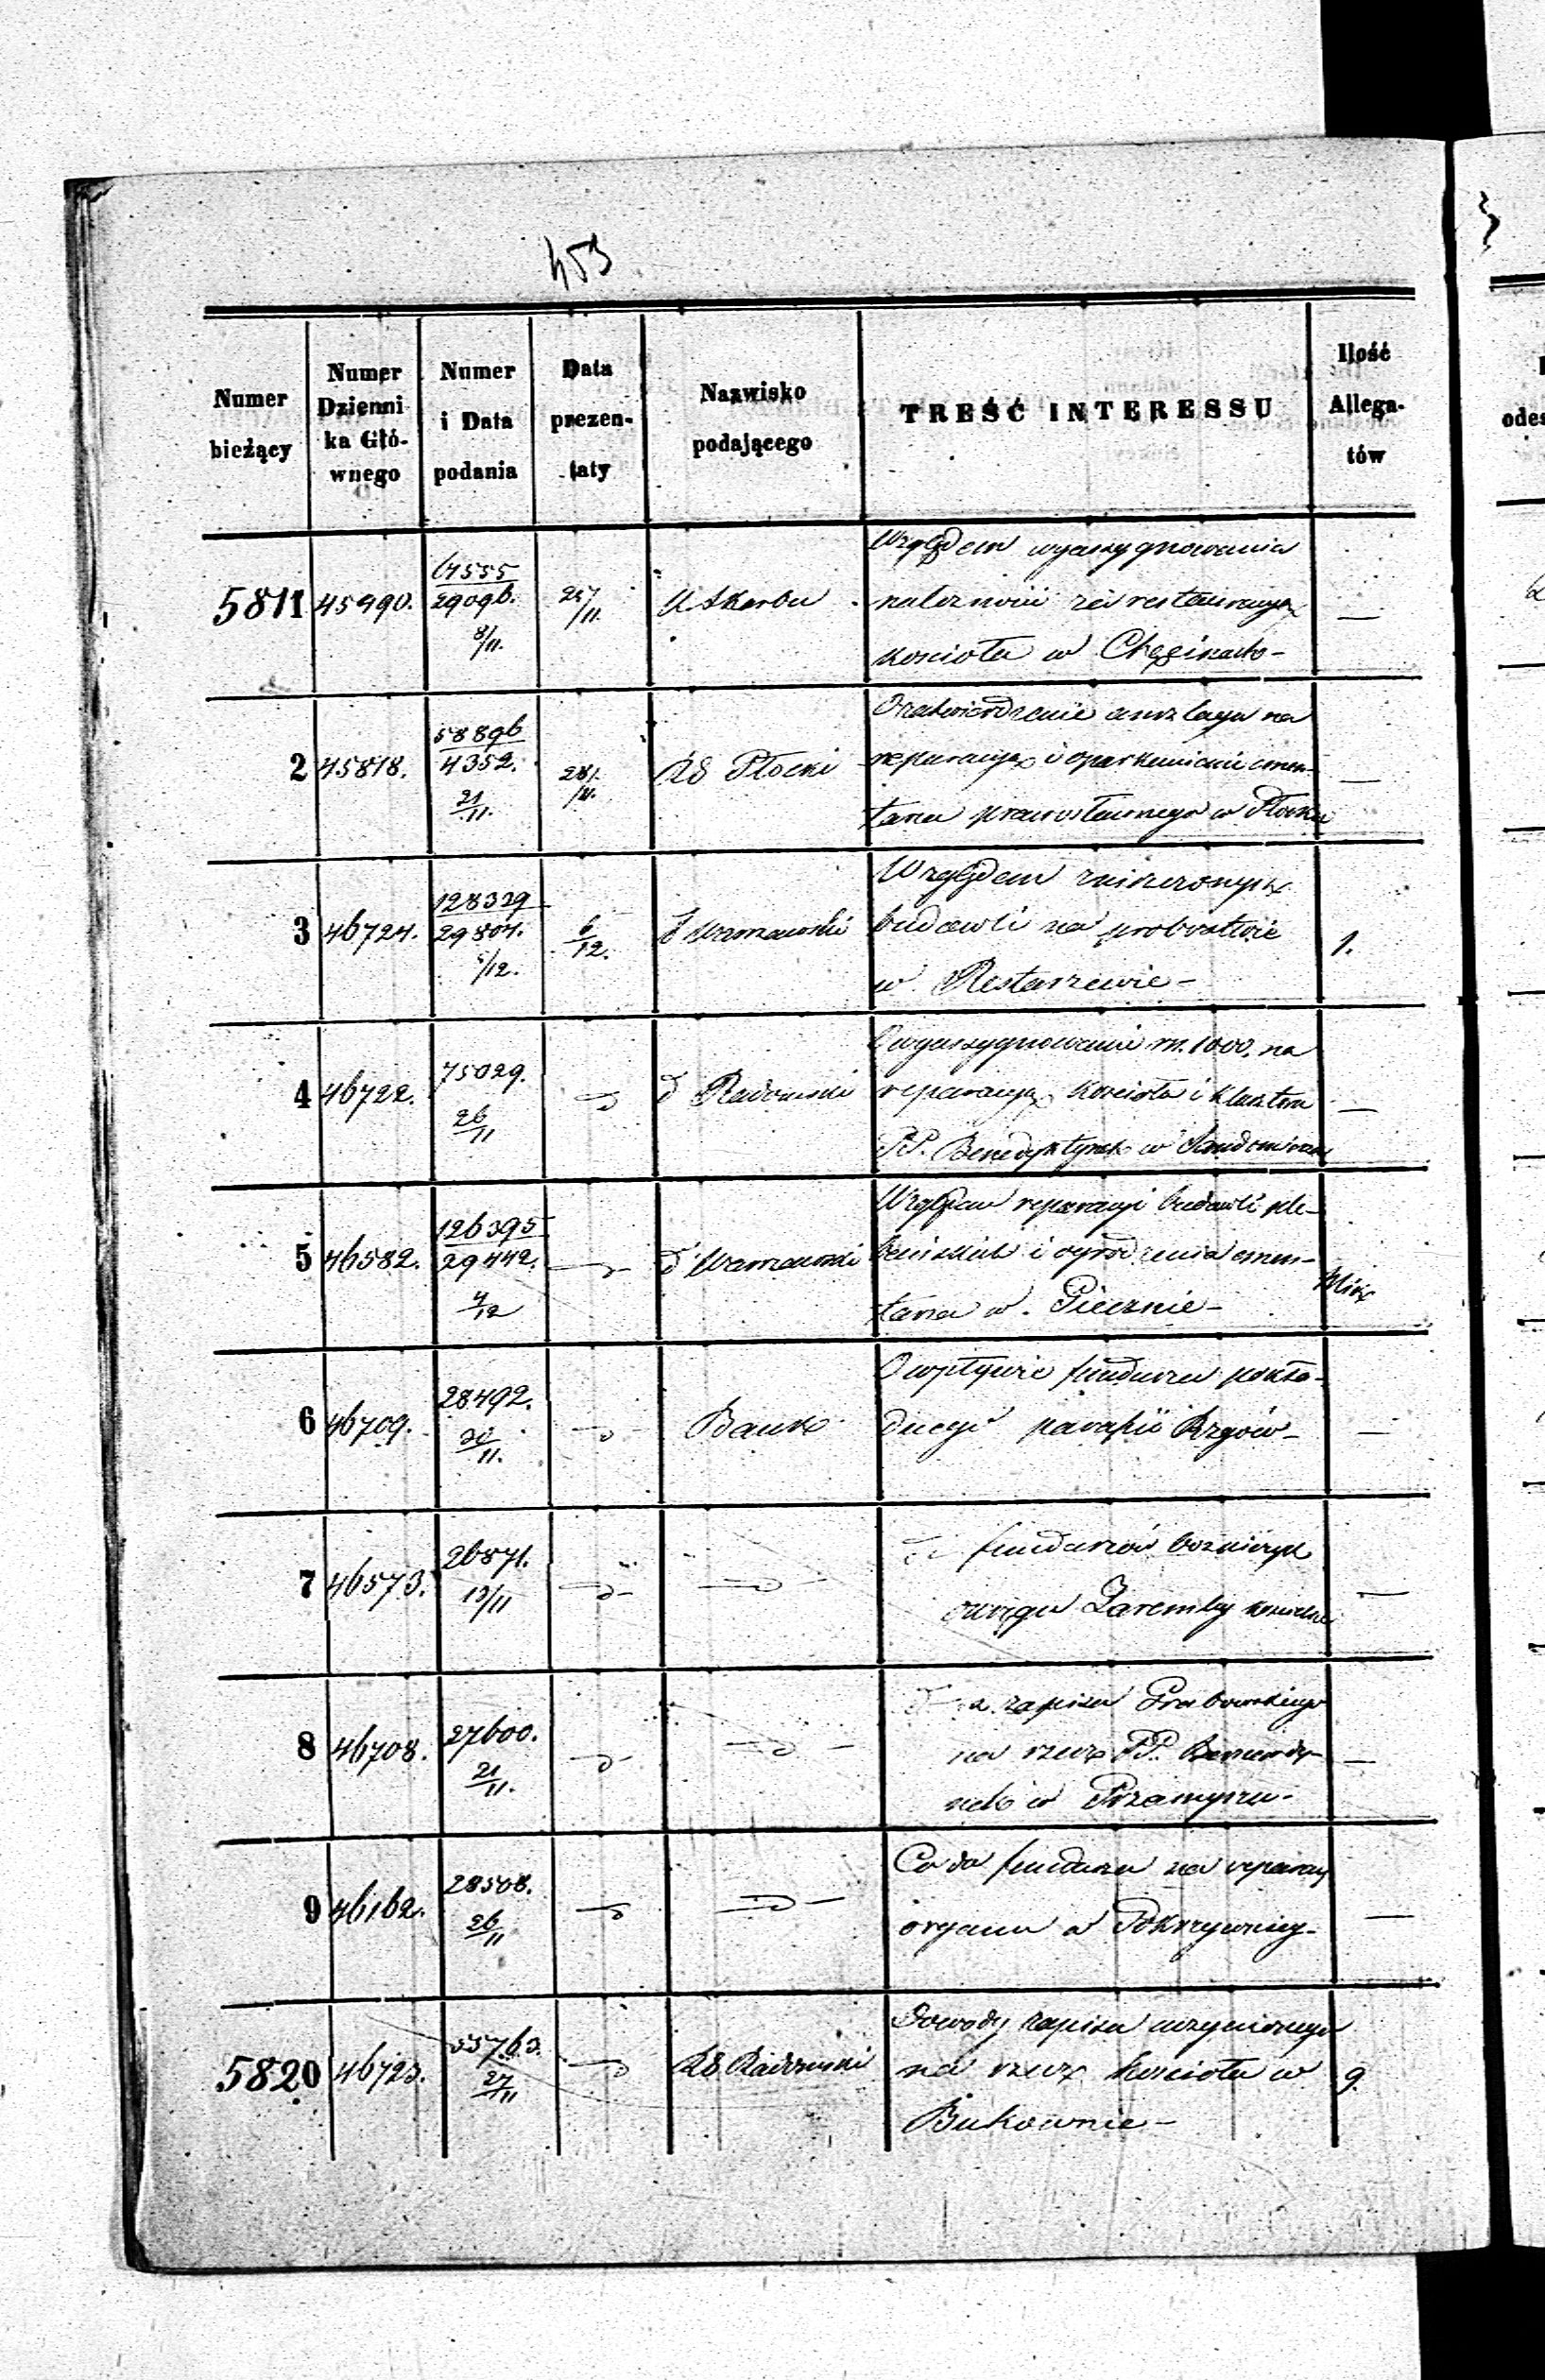 453
Numer bieżący
Numer Dzienni ka Głó- wnego
Numer i Data podania
Data prezen- taty
Nazwisko podającego
TREŚĆ INTERESSU
Ilość Allega- tów
5811 45990. 29096. 8/11. 27/11. K Skarbu —
Względem wyassygnowania
należności za restauracyą
kościoła w
2 45818. 58896 4352. 21/11. 28/11. RG Płocki —
O zatwierdzenie anszlagu na
reparacyą i oparkanienie cmen-
tarza prawosławnego w Płocku
3 46724. 128339 29804. /12. 6/12. d Warszawski 1.
Względem zniszczonych
budowli na probostwie
w Restarzewie -
4 46722. 75029. 26/11 d d Radomski —
O wyassygnowanie rs. 1000. na
reparacyą kościoła i klasztoru
PP. Benedyktynek w Sandomierzu
5 46582. 126395 29442. 4/12 d d Warszawski
Względem reparacyi budowli ple-
bańskich i ogrodzenia cmen-
tarza w.
6 46709. 28492. 30/11. d Bank —
O wpływie funduszu pokła-
dnego parafii Rzgów -
7 46573. 26871. 13/11 d d —
d funduszów bożniczych
okręgu Zaremby kościelne
8 46708. 27600. 21/11. d d —
d z zapisu Grabowskiego
na rzecz PP. Bernardy-
nek w
9 46162. 28508. 26/11 d d —
Co do funduszu na reparacyą
organu w Pokrzywnicy -
5820 46723. 55763. 27/11 d RG Radomski 9.
Dowody zapisu uczynionego
na rzecz kościoła w
Bukownie -
odes